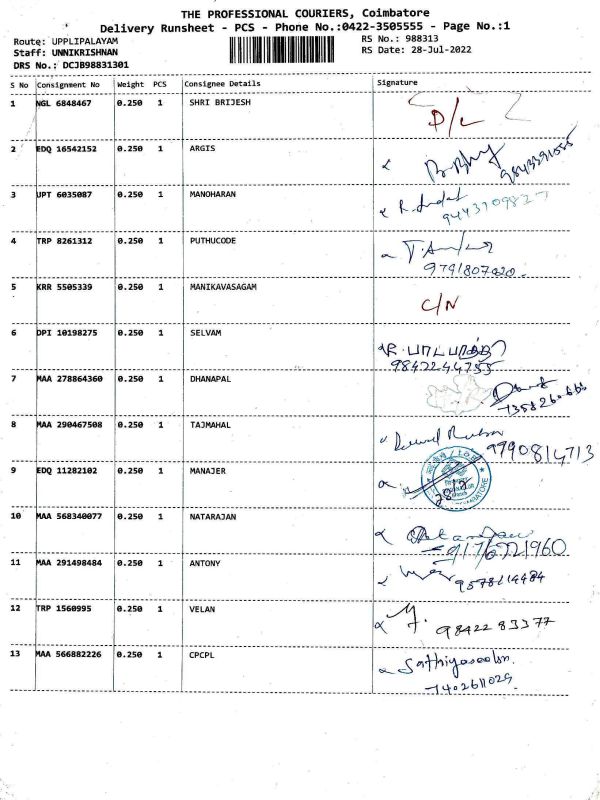 THE PROFESSIONAL COURIERS, Coimbatore
Delivery Runsheet - PCS - Phone No.:0422-3505555 - Page No.:1
Route: UPPLIPALAYAM
RS No.: 988313
Staff: UNNIKRISHNAN
RS Date: 28-Jul-2022
DRS No.: DCJB98831301
S No Consignment No Weight PCS Consignee Details Signature
1 NGL 6848467 0.250 1 SHRI BRIJESH D/L
2 EDQ 16542152 0.250 1 ARGIS
9843391055
3 UPT 6035087 0.250 1 MANOHARAN
9443109827
4 TRP 8261312 0.250 1 PUTHUCODE
9791807020
5 KRR 5505339 0.250 1 MANIKAVASAGAM C/N
6 DPI 10198275 0.250 1 SELVAM
9842244755
7 MAA 278864360 0.250 1 DHANAPAL
8 MAA 290467508 0.250 1 TAJMAHAL
9790814713
9 EDQ 11282102 0.250 1 MANAJER
28/7
COIMBATORE
10 MAA 568340077 0.250 1 NATARAJAN
11 MAA 291498484 0.250 1 ANTONY
9578114484
12 TRP 1560995 0.250 1 VELAN
9842283377
13 MAA 566882226 0.250 1 CPCPL
7402611029